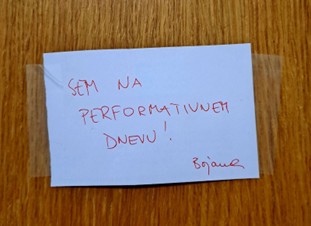 SEM NA
PERFORMATIVNEM
DNEVU!
Bojana